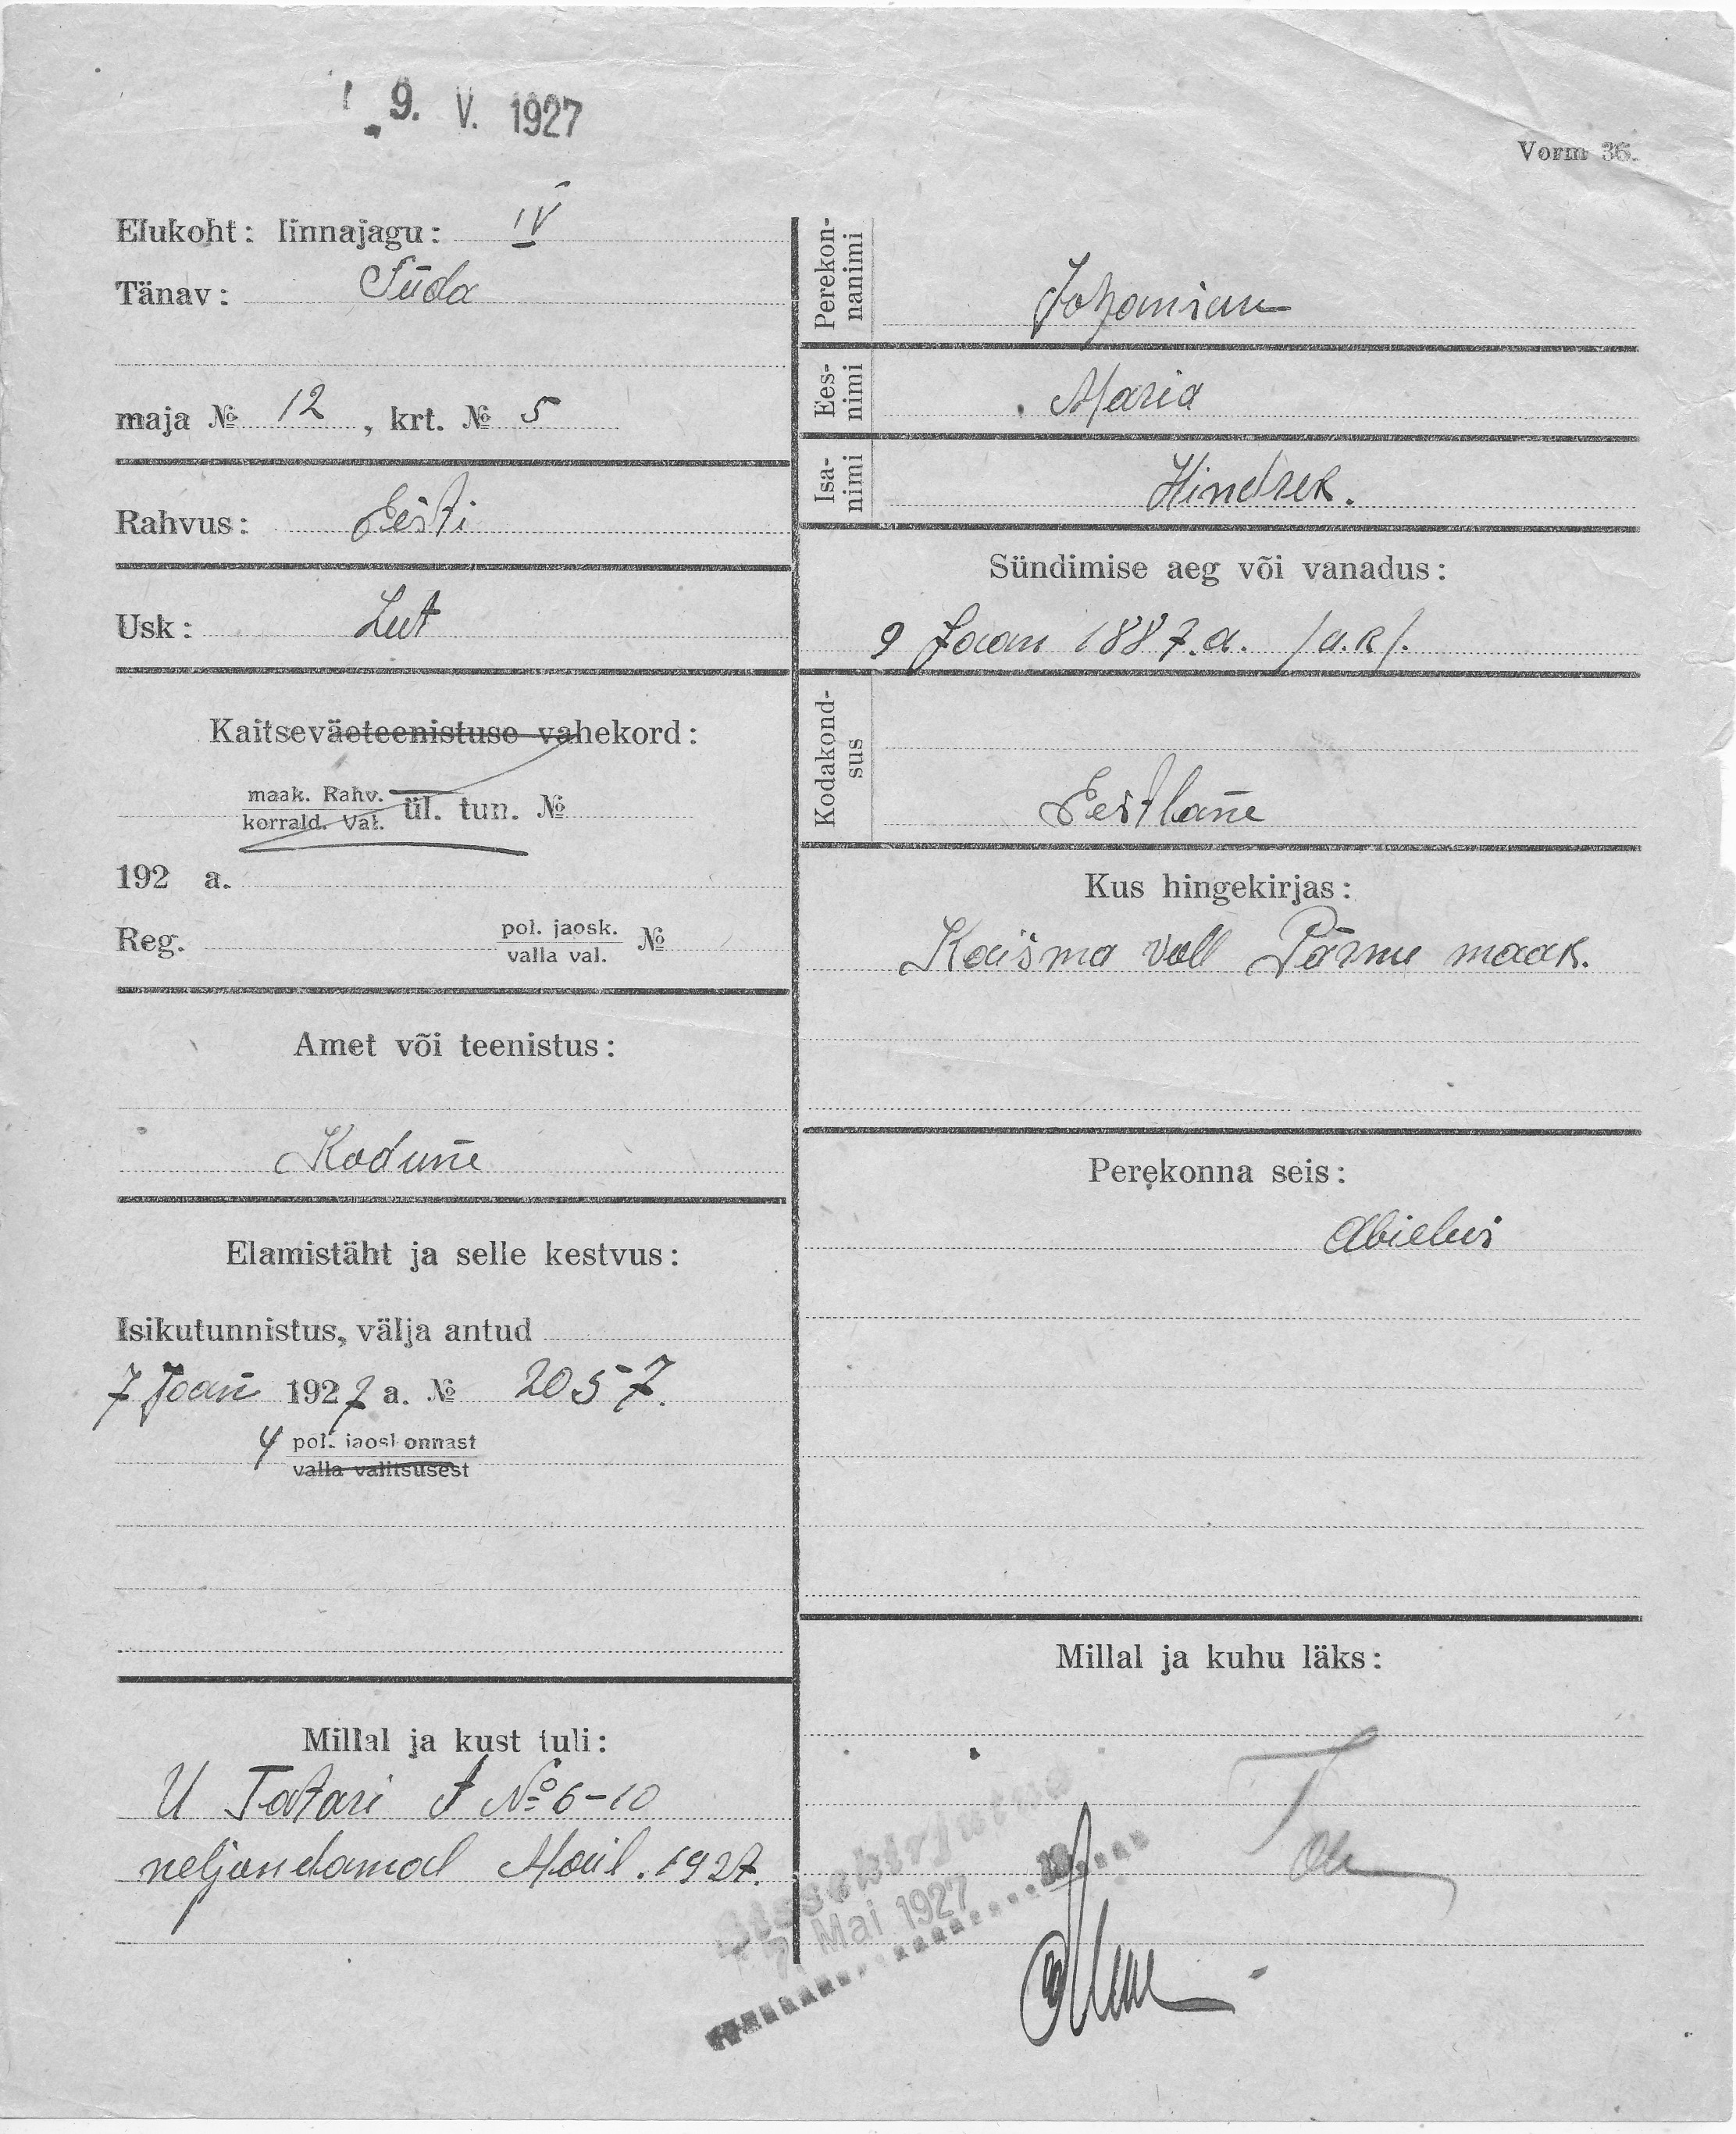 9. V. 1927
Vorm 36.
Elukoht: linnajagu: IV
Tänav: Süda
maja № 12, krt. № 5
Rahvus: Eesti
Usk: Lut
Kaitseväeteenistuse vahekord:
maak. Rahv.
korrald. Val. ül. tun. №
192 a.
Reg. pol. jaosk.
valla val. №
Amet või teenistus:
Kodune
Elamistäht ja selle kestvus:
Isikutunnistus, välja antud
7 Jaan 1927 a. № 2057.
4 pol. jaoskonnast
valla valitsusest
Millal ja kust tuli:
U Tatari t № 6-10
neljandamal Mail. 1927.
Perekon-
nanimi
Ees-
nimi Maria
Isa-
nimi Hindrek.
Sündimise aeg või vanadus:
9 Jaan 1887.a. /a.k/.
Kodakond-
sus Eestlane
Kus hingekirjas:
Kaisma vall Pärnu maak.
Perekonna seis:
Abielus
Millal ja kuhu läks:
Sissekirjutus
7. Mai 1927